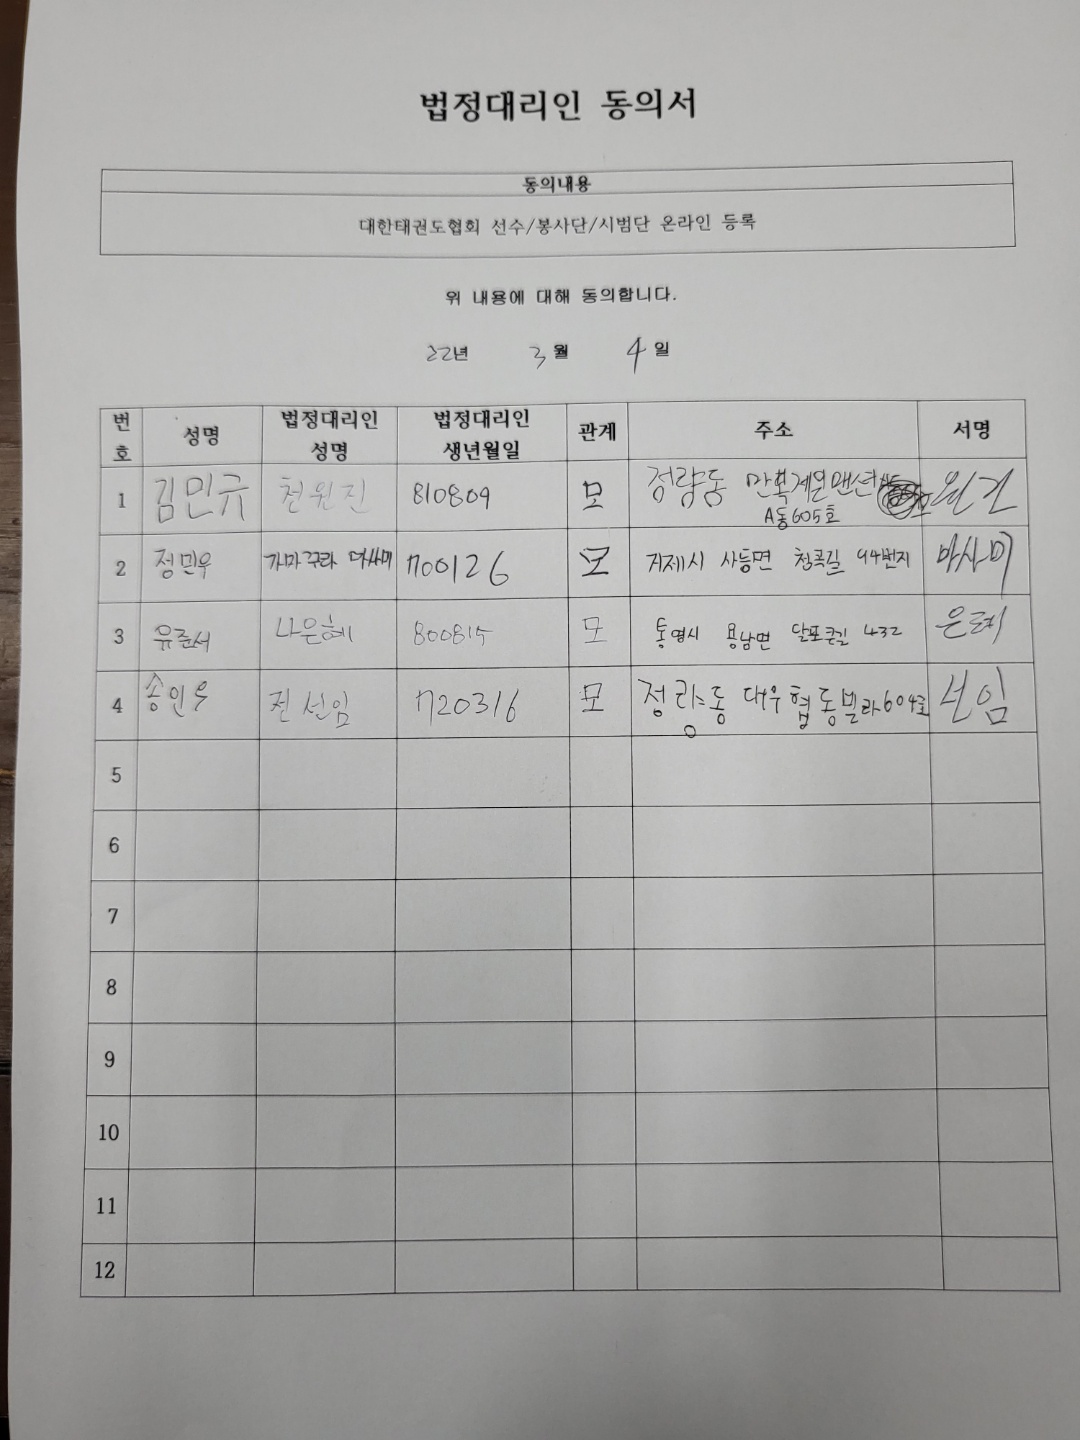 법정대리인 동의서
동의내용
대한태권도협회 선수/봉사단/시범단 온라인 등록
위 내용에 대해 동의합니다.
22년 3월 4일
번호 성명 법정대리인 성명 법정대리인 생년월일 관계 주소 서명
1 김민규 천원진 810809 모 정량동 만복제일맨션 A동605호
2 정민우 700126 모 거제시 사등면 청곡길 94번지 마사미
3 유준서 나은혜 800815 모 통영시 용남면 달포큰길 432 은혜
4 송인우 전선임 720316 모 정량동 대우협동빌라604호 선임
5
6
7
8
9
10
11
12